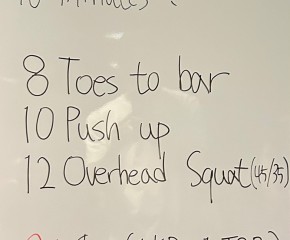 10 Minutes
8 Toes to bar
10 Push up
12 Overhead Squat (45/35)